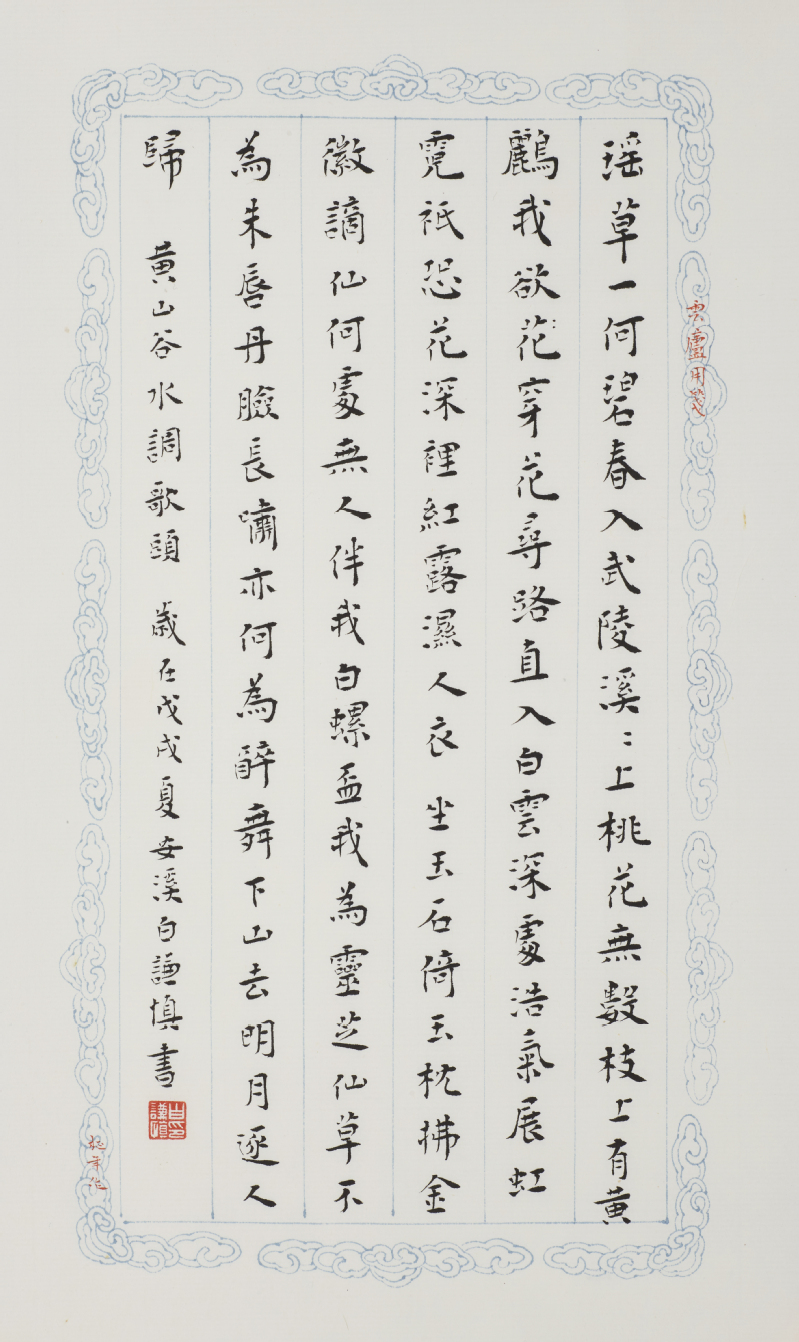 瑶草一何碧春入武陵溪〻上桃花無數枝上有黃
鸝我欲花穿花尋路直入白雲深處浩氣展虹
霓祇恐花深裡紅露濕人衣 坐玉石倚玉枕拂金
徽謫仙何處無人伴我白螺盃我為靈芝仙草不
為朱唇丹臉長嘯亦何為醉舞下山去明月逐人
歸 黃山谷水調歌頭 歲在戊戌夏安溪白謙慎書
白謙慎印
雲廬用箋